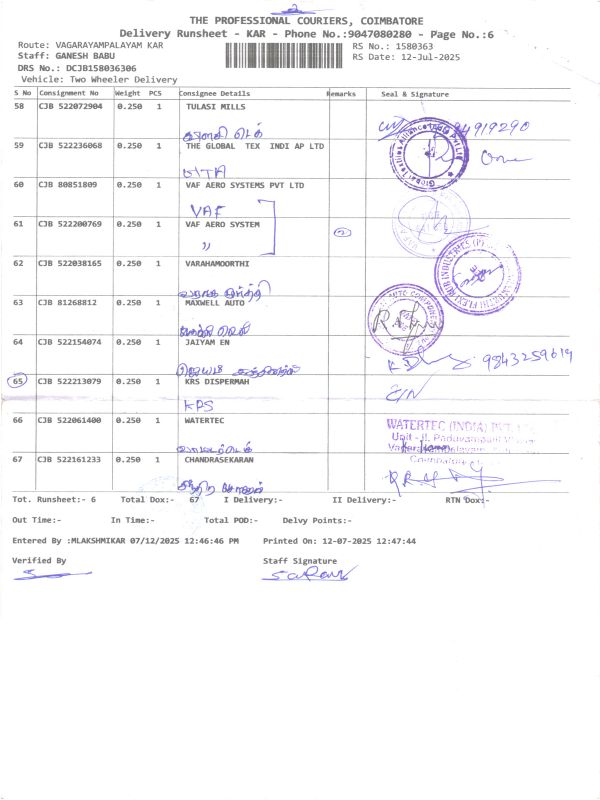 THE PROFESSIONAL COURIERS, COIMBATORE
Delivery Runsheet - KAR - Phone No.:9047080280 - Page No.:6
Route: VAGARAYAMPALAYAM KAR
RS No.: 1580363
Staff: GANESH BABU
RS Date: 12-Jul-2025
DRS No.: DCJB158036306
Vehicle: Two Wheeler Delivery
S No Consignment No Weight PCS Consignee Details Remarks Seal & Signature
58 CJB 522072904 0.250 1 TULASI MILLS
94919290
59 CJB 522236068 0.250 1 THE GLOBAL TEX INDI AP LTD
60 CJB 80851809 0.250 1 VAF AERO SYSTEMS PVT LTD
VAF
61 CJB 522200769 0.250 1 VAF AERO SYSTEM
"
2
62 CJB 522038165 0.250 1 VARAHAMOORTHI
63 CJB 81268812 0.250 1 MAXWELL AUTO
64 CJB 522154074 0.250 1 JAIYAM EN
9843259619
65 CJB 522213079 0.250 1 KRS DISPERMAH
KPS
66 CJB 522061400 0.250 1 WATERTEC
WATERTEC (INDIA) PVT.
Unit - II, Paduvampalli
67 CJB 522161233 0.250 1 CHANDRASEKARAN
Tot. Runsheet:- 6 Total Dox:- 67 I Delivery:- II Delivery:- RTN Dox:-
Out Time:- In Time:- Total POD:- Delvy Points:-
Entered By :MLAKSHMIKAR 07/12/2025 12:46:46 PM Printed On: 12-07-2025 12:47:44
Verified By Staff Signature